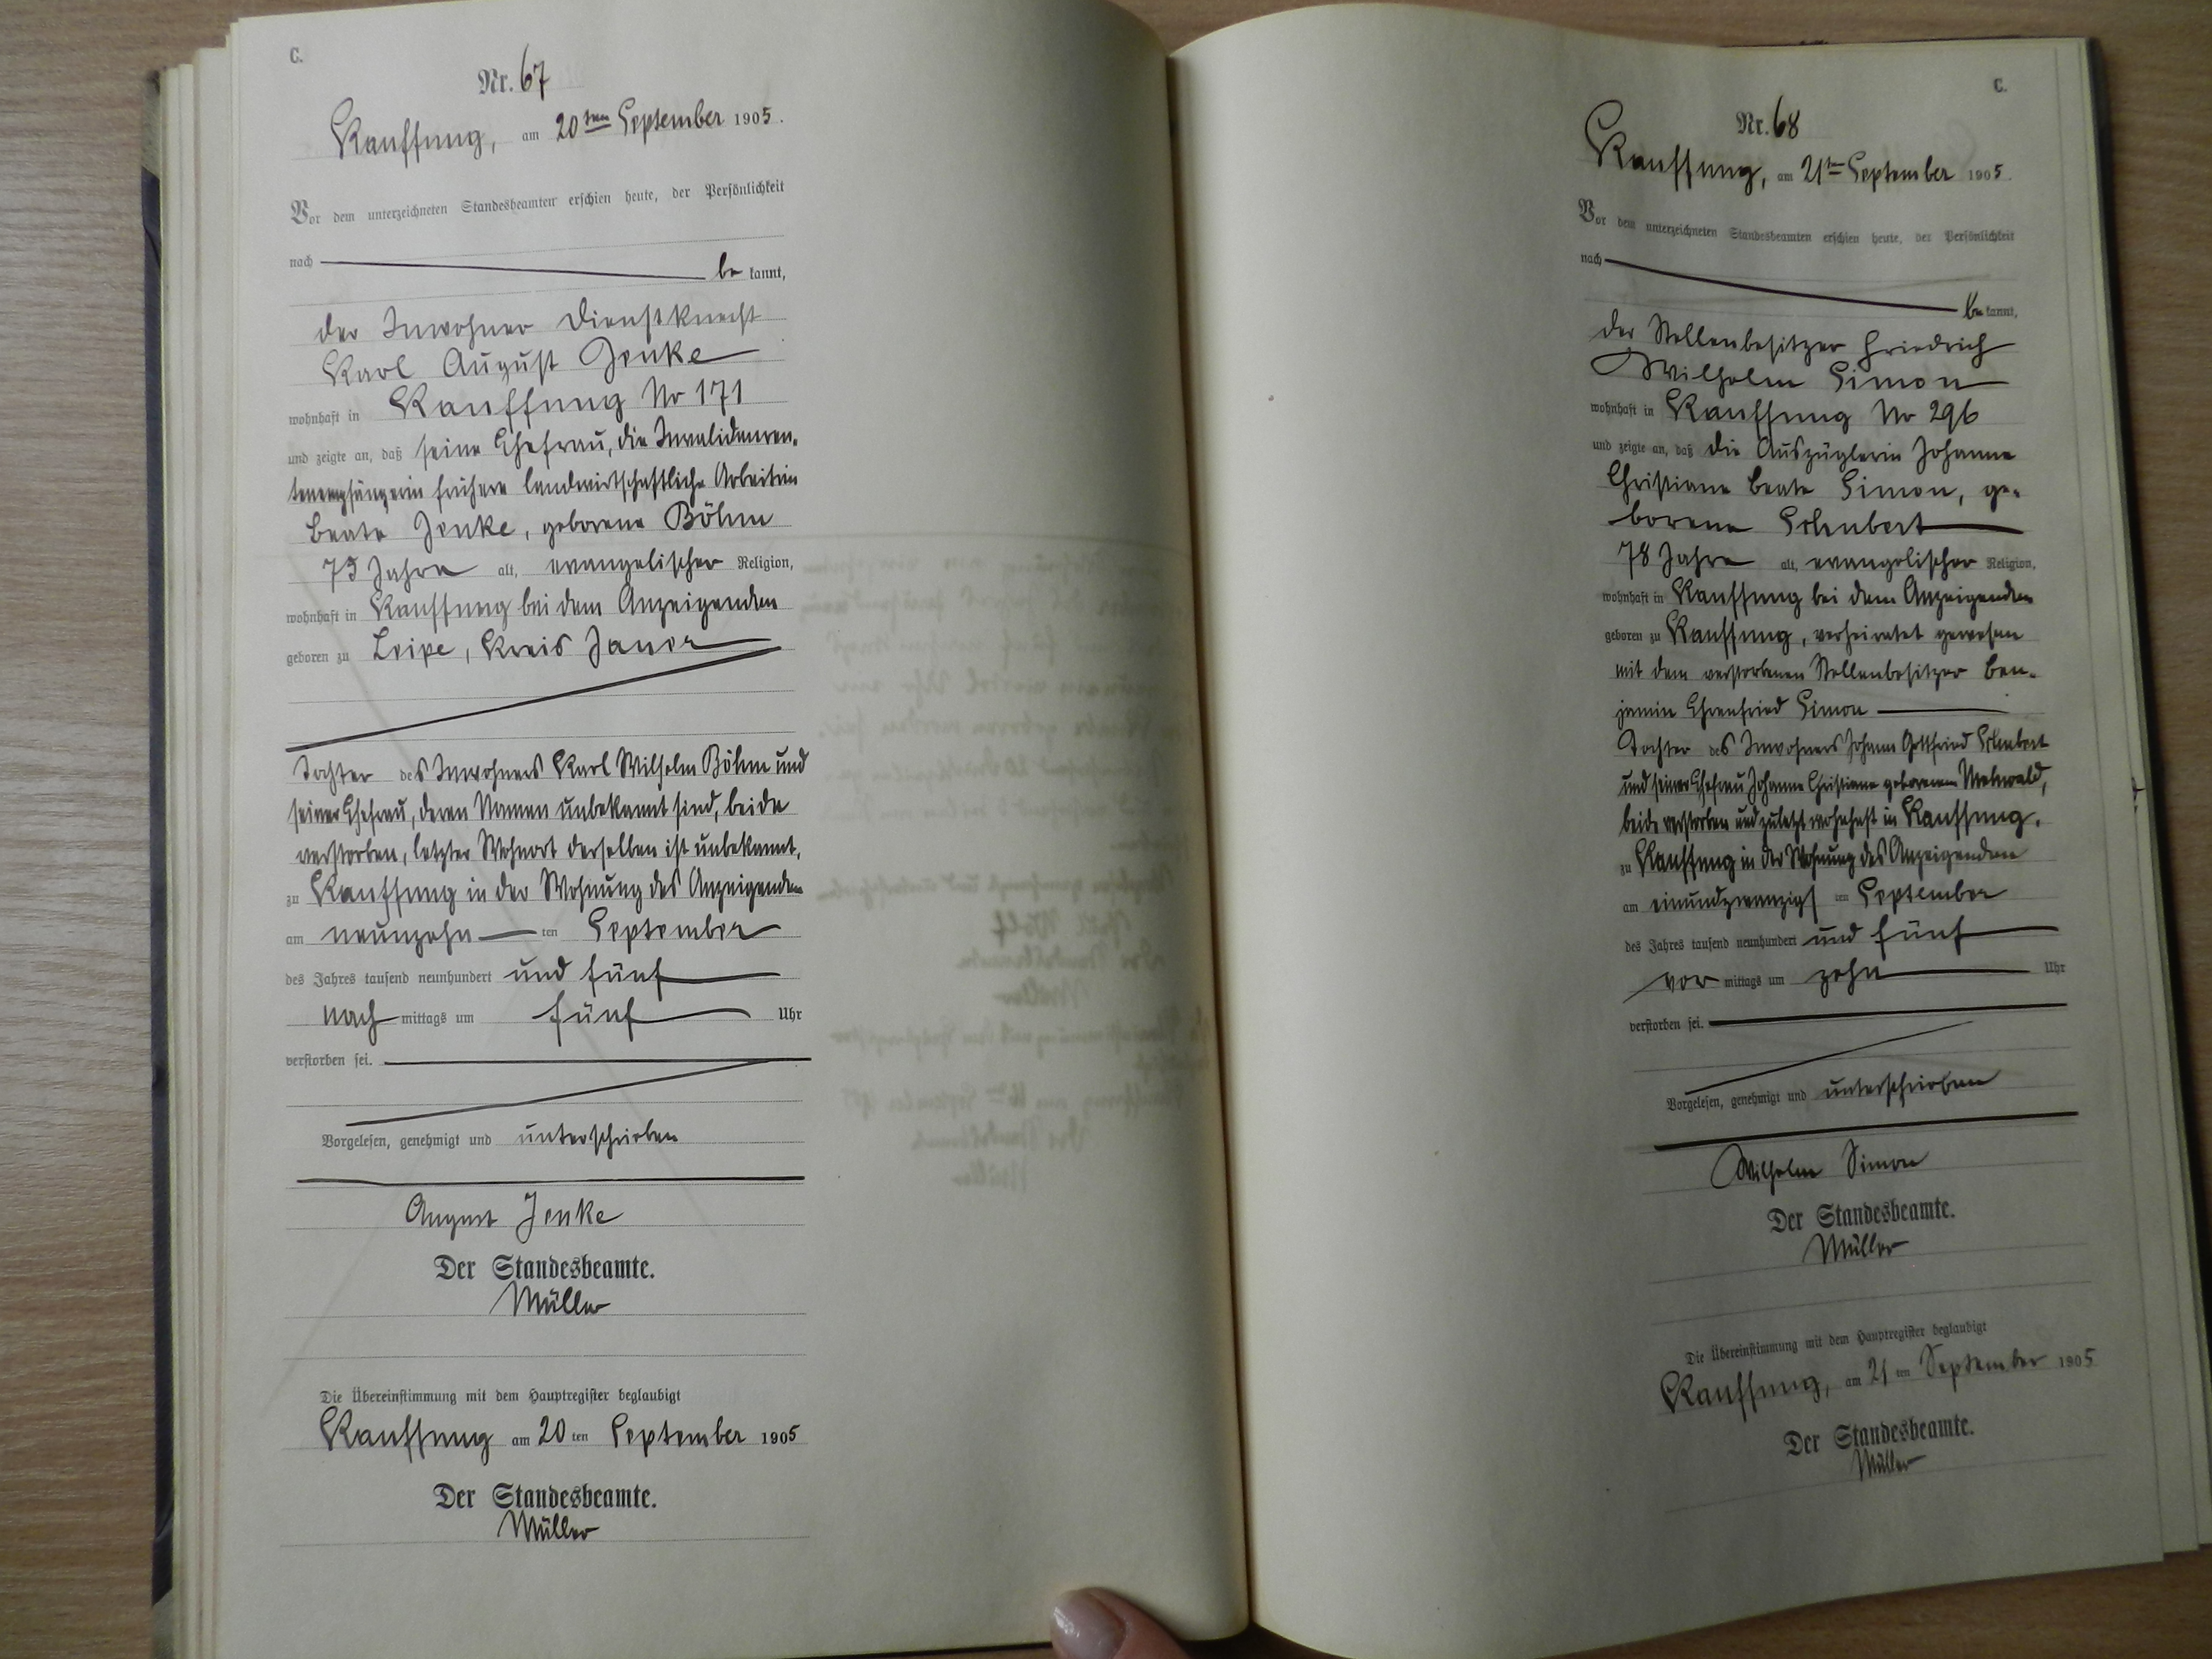 C.
Nr. 67
Kauffung, am 20ten September 1905.
Vor dem unterzeichneten Standesbeamten erschien heute, der Persönlichkeit
nach be kannt,
der Inwohner Dienstknecht
Karl August Jenke
wohnhaft in Kauffung No 171
und zeigte an, daß seine Ehefrau, die Invalidenren-
tenempfängerin frühere landwirtschaftliche Arbeiterin
Beate Jenke, geborene Böhm
73 Jahre alt, evangelischer Religion,
wohnhaft in Kauffung bei dem Anzeigenden
geboren zu Leipe, Kreis Jauer
Tochter des Inwohners Karl Wilhelm Böhm und
seiner Ehefrau, deren Namen unbekannt sind, beide
verstorben, letzter Wohnort derselben ist unbekannt,
zu Kauffung in der Wohnung des Anzeigenden
am neunzehn ten September
des Jahres tausend neunhundert und fünf
nach mittags um fünf Uhr
verstorben sei.
Vorgelesen, genehmigt und unterschrieben
August Jenke
Der Standesbeamte.
Müller
Die Übereinstimmung mit dem Hauptregister beglaubigt
Kauffung am 20 ten September 1905
Der Standesbeamte.
Müller
C.
Nr. 68
Kauffung, am 21ten September 1905.
Vor dem unterzeichneten Standesbeamten erschien heute, der Persönlichkeit
nach be kannt,
der Stellenbesitzer Friedrich
Wilhelm Simon
wohnhaft in Kauffung No 296
und zeigte an, daß die Auszüglerin Johanne
Christiane Beate Simon, ge-
borene Schubert
78 Jahre alt, evangelischer Religion,
wohnhaft in Kauffung bei dem Anzeigenden
geboren zu Kauffung, verheiratet gewesen
mit dem verstorbenen Stellenbesitzer Ben-
jamin Ehrenfried Simon
Tochter des Inwohners Johann Gottfried Schubert
und seiner Ehefrau Johanne Christiane geborenen
beide verstorben und zuletzt wohnhaft in Kauffung,
zu Kauffung in der Wohnung des Anzeigenden
am einundzwanzigs ten September
des Jahres tausend neunhundert und fünf
vor mittags um zehn Uhr
verstorben sei.
Vorgelesen, genehmigt und unterschrieben
Wilhelm Simon
Der Standesbeamte.
Müller
Die Übereinstimmung mit dem Hauptregister beglaubigt
Kauffung, am 21 ten September 1905
Der Standesbeamte.
Müller